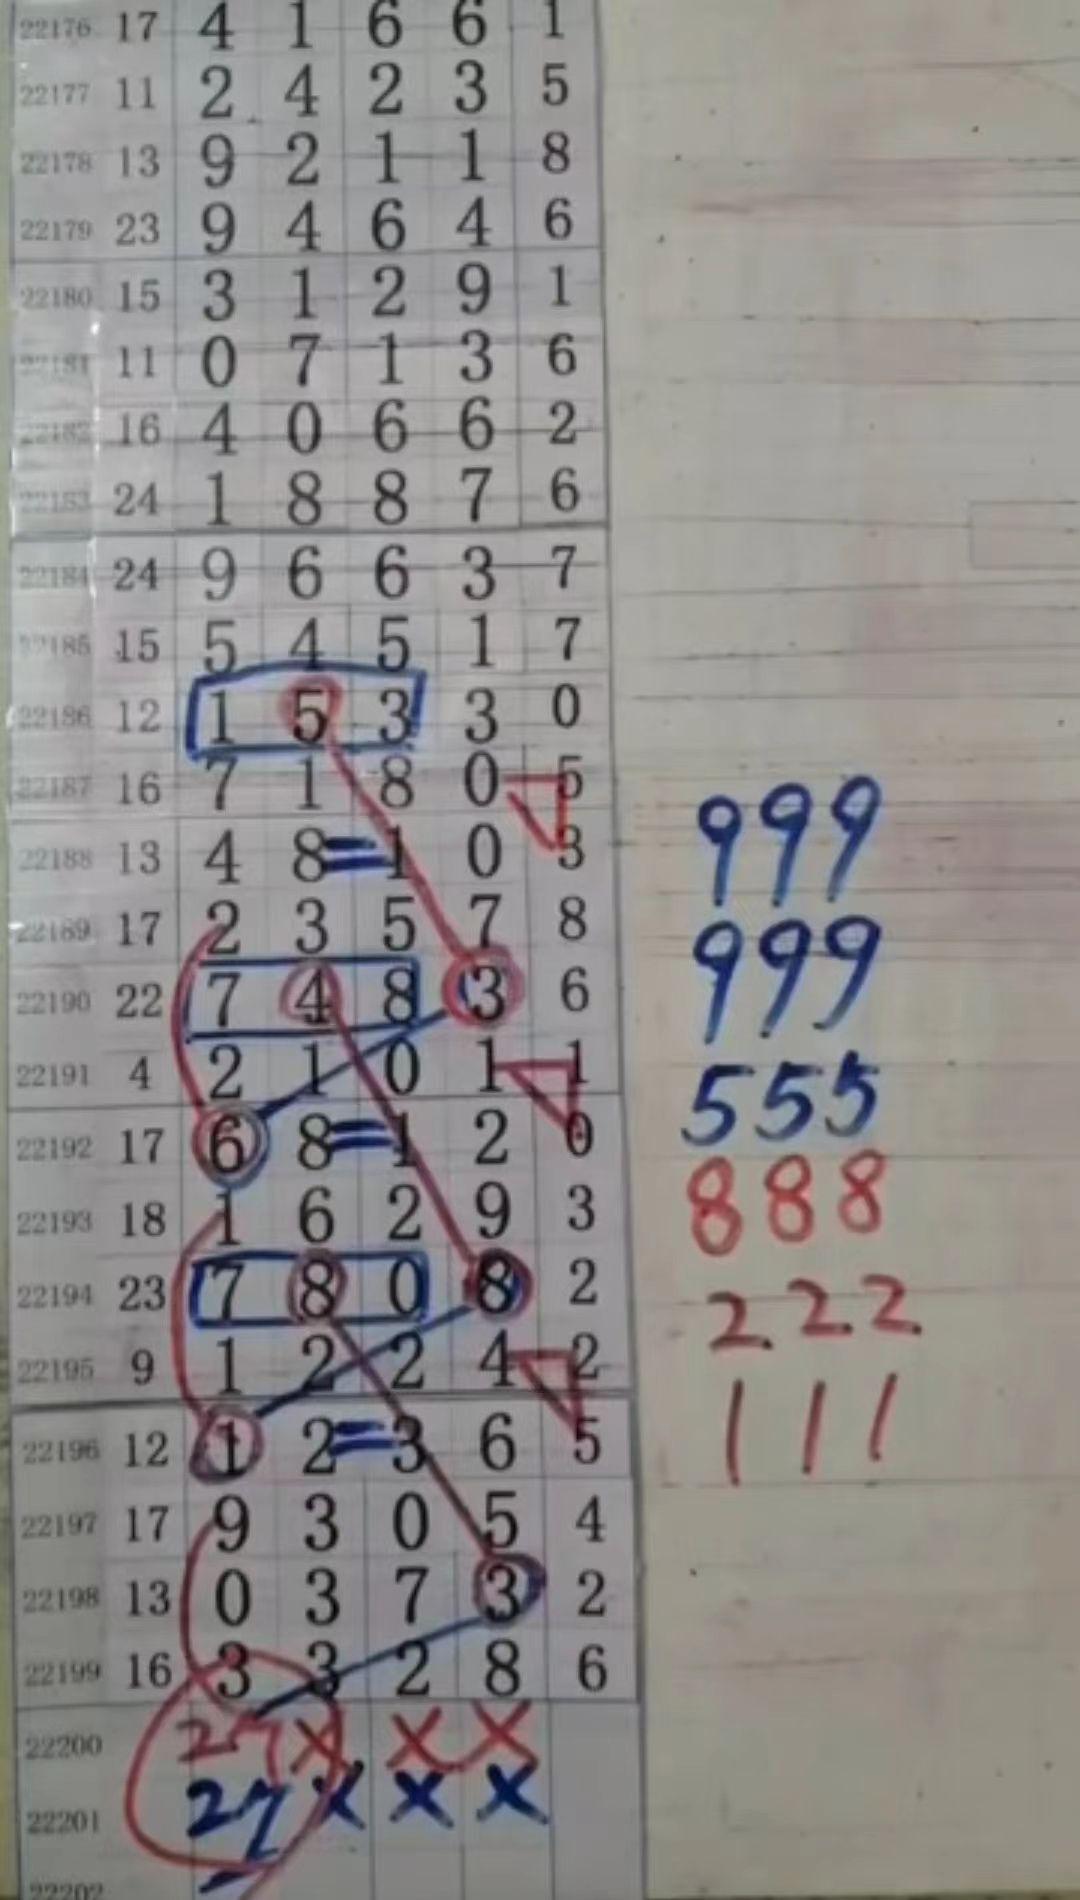 22176 17 4 1 6 6 1
22177 11 2 4 2 3 5
22178 13 9 2 1 1 8
22179 23 9 4 6 4 6
22180 15 3 1 2 9 1
22181 11 0 7 1 3 6
22182 16 4 0 6 6 2
22183 24 1 8 8 7 6
22184 24 9 6 6 3 7
22185 15 5 4 5 1 7
22186 12 1 5 3 3 0
22187 16 7 1 8 0 5
22188 13 4 8 = 1 0 3
22189 17 2 3 5 7 8
22190 22 7 4 8 3 6
22191 4 2 1 0 1 1
22192 17 6 8 = 1 2 0
22193 18 1 6 2 9 3
22194 23 7 8 0 8 2
22195 9 1 2 2 4 2
22196 12 1 2 = 3 6 5
22197 17 9 3 0 5 4
22198 13 0 3 7 3 2
22199 16 3 3 2 8 6
22200 27 X X X
22201 27 X X X
22202
999
999
555
888
222
111